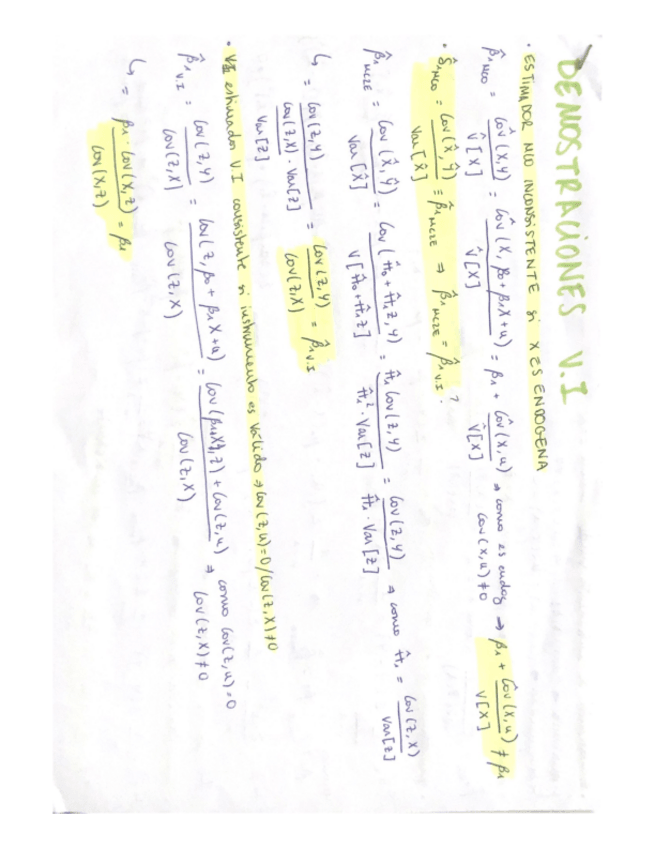 DEMOSTRACIONES V.I
• ESTIMADOR MCO INCONSISTENTE SI X ES ENDOGENA
β̂₁ MCO = Côv(X,Y) / V̂[X] = Côv(X, β₀+β₁X+u) / V̂[X] = β₁ + Côv(X,u) / V̂[X] ⇒ como es endog → cov(X,u)≠0 β₁ + Côv(X,u) / V[X] ≠ β₁
• δ̂₁ MCO = Cov(X̂,Ŷ) / Var[X̂] = β̂₁ MC2E ⇒ β̂₁ MC2E = β̂₁ V.I ?
β̂₁ MC2E = Cov(X̂,Ŷ) / Var[X̂] = Cov(π̂₀+π̂₁Z,Y) / V[π̂₀+π̂₁Z] = π̂₁ Cov(Z,Y) / π̂₁²·Var[Z] = Cov(Z,Y) / π̂₁·Var[Z] ⇒ como π̂₁ = Cov(Z,X) / Var[Z]
↳ = Cov(Z,Y) / (Cov(Z,X)·Var[Z] / Var[Z]) = Cov(Z,Y) / Cov(Z,X) = β̂₁ V.I
• VI estimador V.I consistente si instrumento es válido ⇒ Cov(Z,u)=0/Cov(Z,X)≠0
β̂₁ V.I = Cov(Z,Y) / Cov(Z,X) = Cov(Z, β₀+β₁X+u) / Cov(Z,X) = Cov(β₁X,Z)+Cov(Z,u) / Cov(Z,X) ⇒ como Cov(Z,u)=0 Cov(Z,X)≠0
↳ = β₁·Cov(X,Z) / Cov(X,Z) = β₁